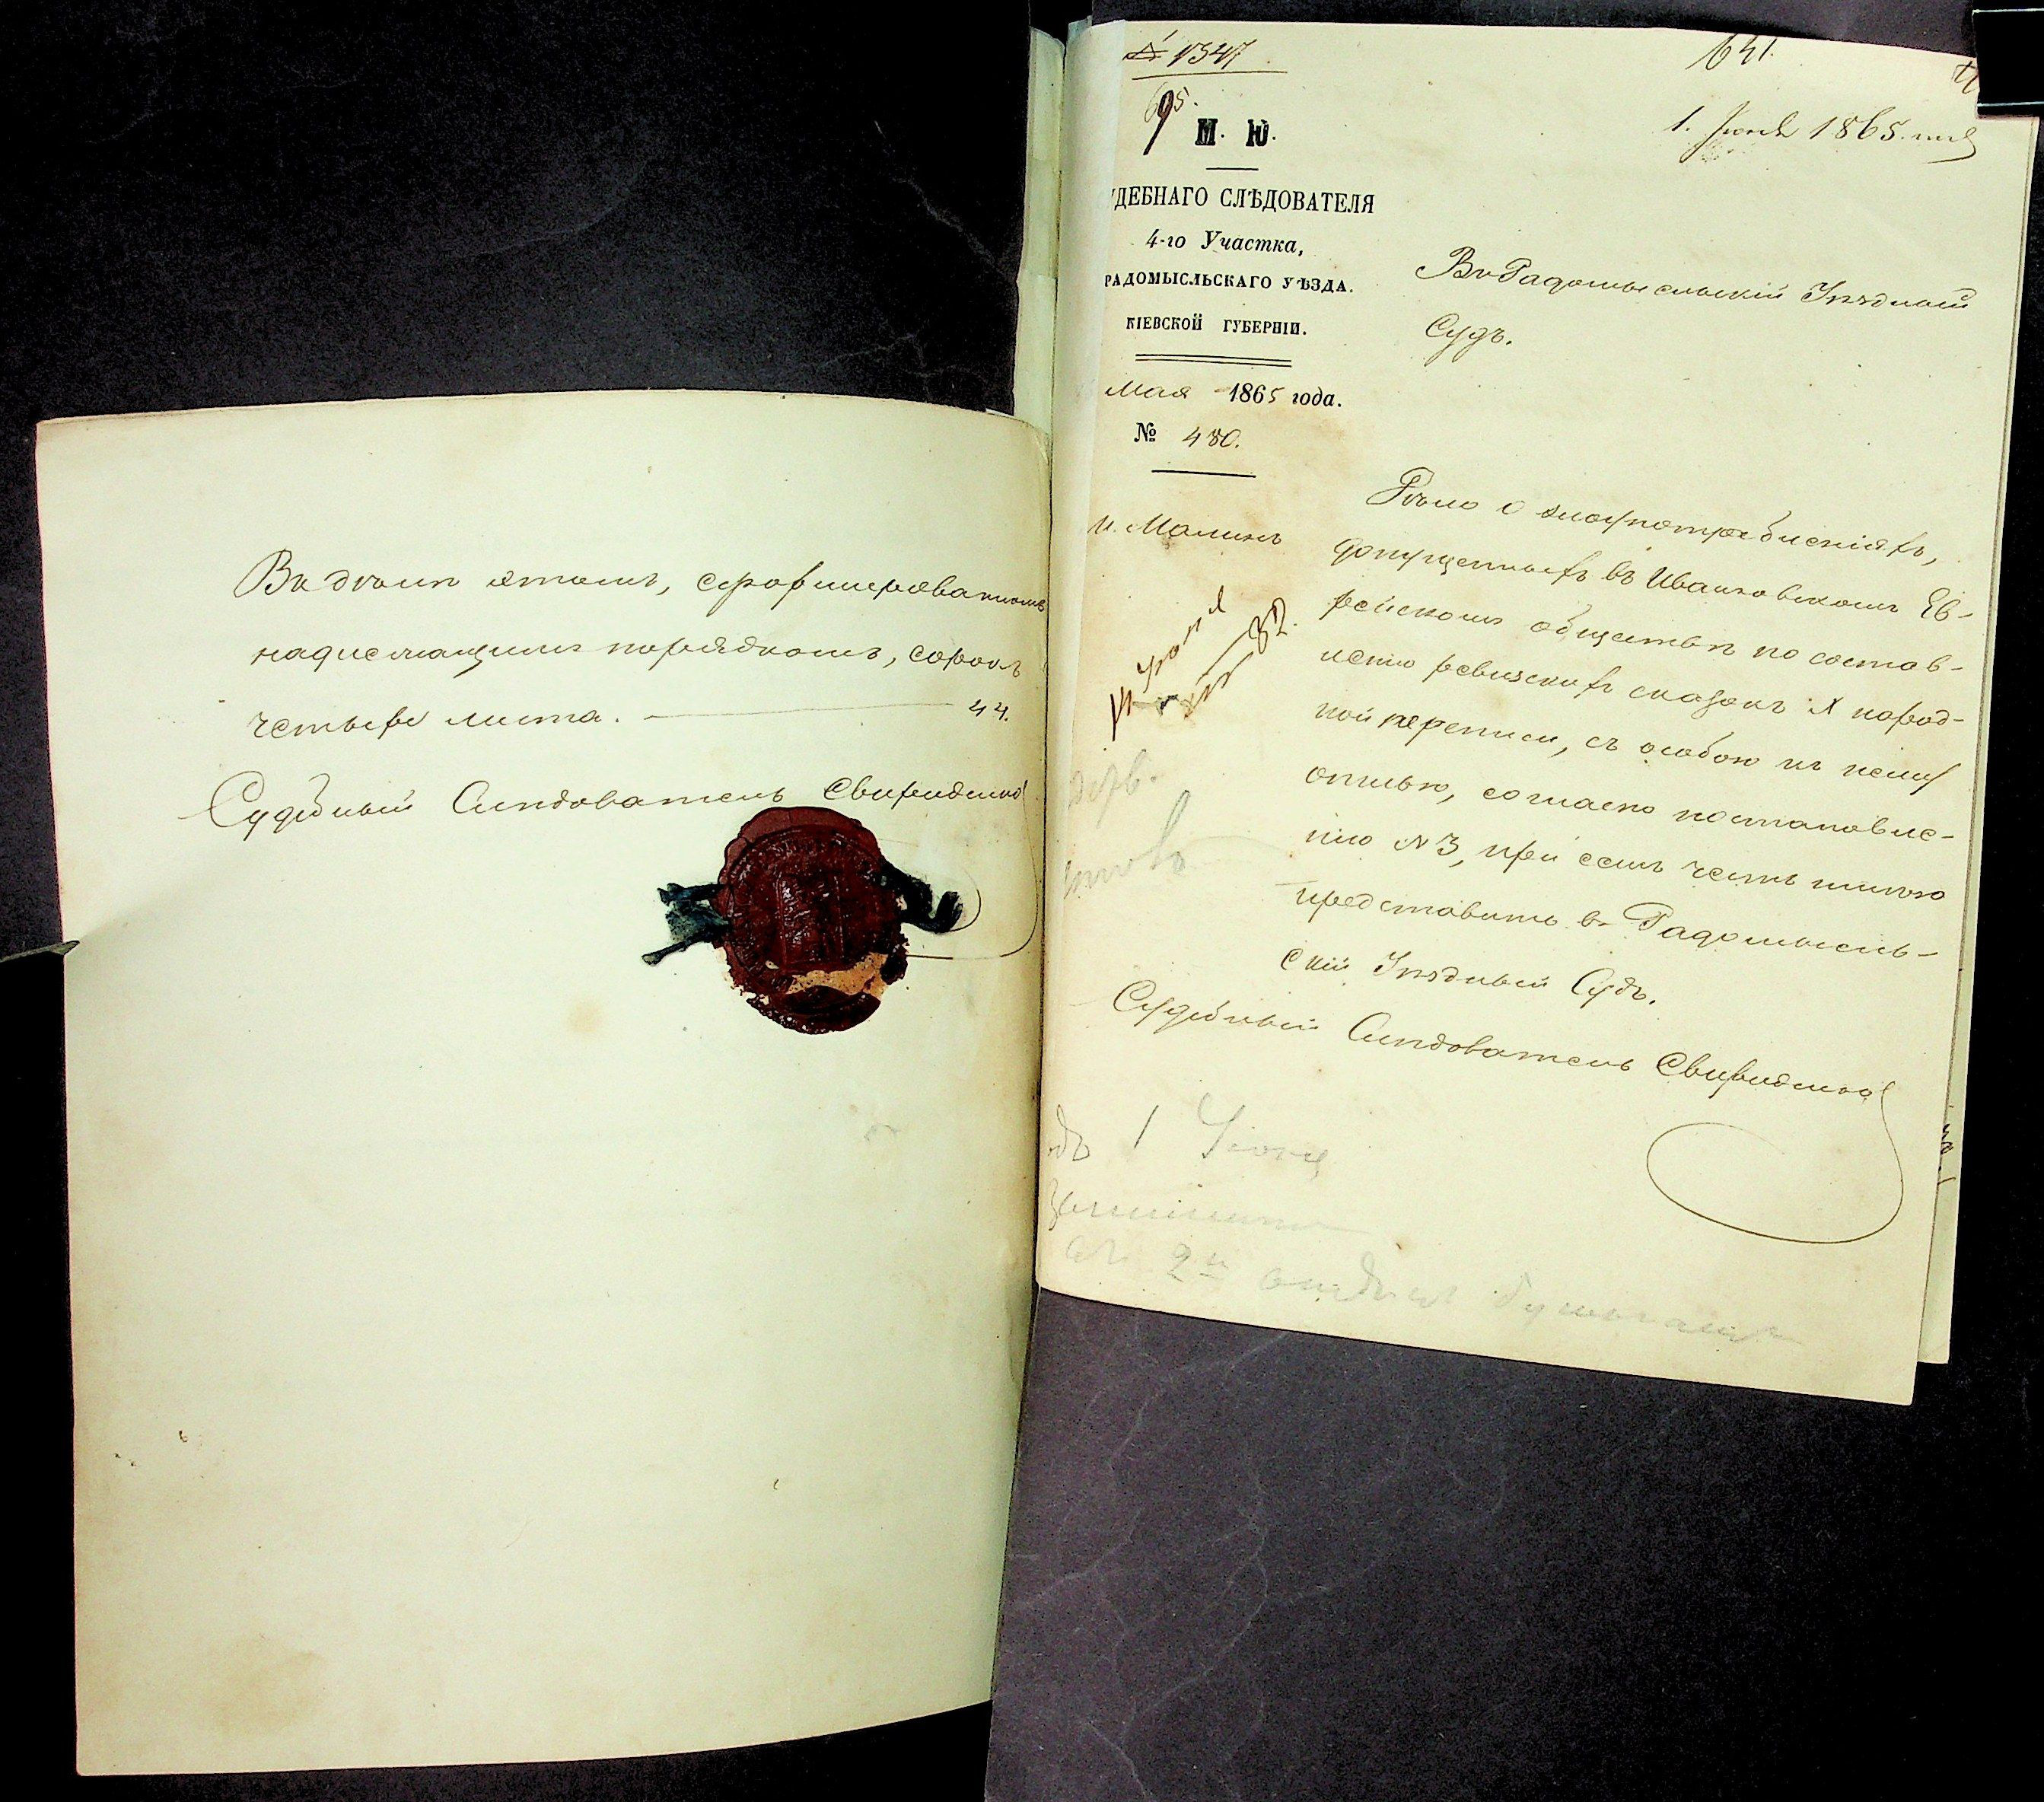 Въ дѣлѣ этомъ, сброшюрованномъ
надлежащимъ порядкомъ, сорокъ
четыре листа. 44.
Судебный Слѣдователь Свириденко
№ 1347
641.
1. Іюня 1865.
М. Ю.
ДЕБНАГО СЛѢДОВАТЕЛЯ
4-го Участка,
РАДОМЫСЛЬСКАГО УѢЗДА.
КІЕВСКОЙ ГУБЕРНІИ.
Мая 1865 года.
№ 480.
м. Малинъ
Въ Радомысльскій Уѣздный
Судъ.
Дѣло о злоупотребленіяхъ,
допущенныхъ въ Иванковскомъ Ев-
рейскомъ обществѣ по состав-
ленію ревизскихъ сказокъ X народ-
ной переписи, съ особою къ нему
описью, согласно постановле-
нію №3, при семъ честь имѣю
представить в Радомысль-
скій Уѣздный Судъ.
Судебный Слѣдователь Свириденко
1 Іюня